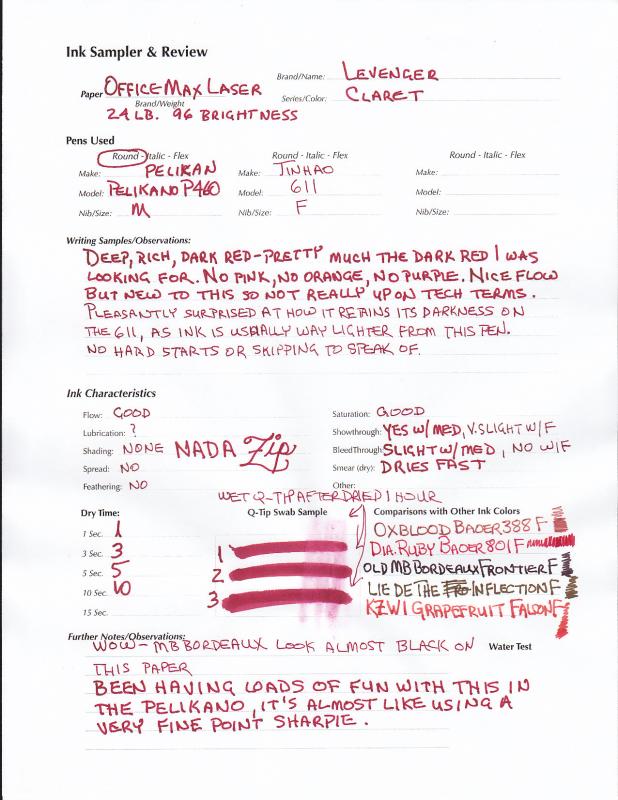 Ink Sampler & Review
Brand/Name: LEVENGER
Paper OFFICEMAX LASER
Series/Color: CLARET
Brand/Weight
24 LB. 96 BRIGHTNESS
Pens Used
Round - Italic - Flex Round - Italic - Flex Round - Italic - Flex
Make: PELIKAN Make: JINHAO Make:
Model: PELIKANO P460 Model: 611 Model:
Nib/Size: M Nib/Size: F Nib/Size:
Writing Samples/Observations:
DEEP, RICH, DARK RED - PRETTY MUCH THE DARK RED I WAS
LOOKING FOR. NO PINK, NO ORANGE, NO PURPLE. NICE FLOW
BUT NEW TO THIS SO NOT REALLY UP ON TECH TERMS.
PLEASANTLY SURPRISED AT HOW IT RETAINS ITS DARKNESS ON
THE 611, AS INK IS USUALLY WAY LIGHTER FROM THIS PEN.
NO HARD STARTS OR SKIPPING TO SPEAK OF.
Ink Characteristics
Flow: GOOD Saturation: GOOD
Lubrication: ? Showthrough: YES W/ MED, V. SLIGHT W/F
Shading: NONE NADA Zip BleedThrough: SLIGHT W/ MED, NO W/F
Spread: NO Smear (dry): DRIES FAST
Feathering: NO Other:
WET Q-TIP AFTER DRIED 1 HOUR
Dry Time: Q-Tip Swab Sample Comparisons with Other Ink Colors
1 Sec. 1 OXBLOOD BAOER 388 F
3 Sec. 3 1 DIA. RUBY BAOER 801 F
5 Sec. 5 2 OLD MB BORDEAUX FRONTIER F
10 Sec. 10 3 LIE DE THE INFLECTION F
15 Sec. KZW1 GRAPEFRUIT FALCON F
Further Notes/Observations: Water Test
WOW - MB BORDEAUX LOOK ALMOST BLACK ON
THIS PAPER
BEEN HAVING LOADS OF FUN WITH THIS IN
THE PELIKANO, IT'S ALMOST LIKE USING A
VERY FINE POINT SHARPIE.